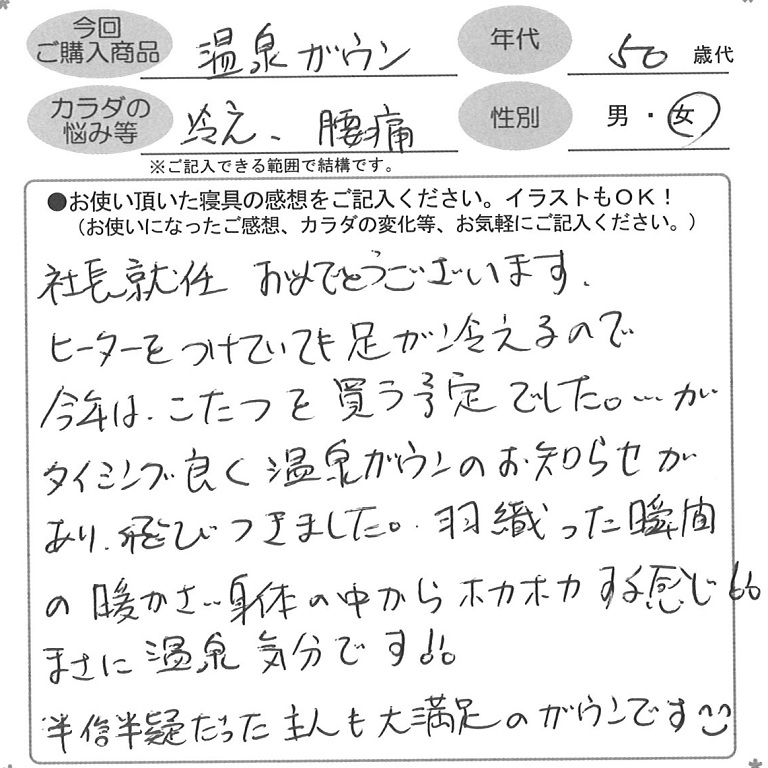 今回
ご購入商品 温泉ガウン
年代 50 歳代
カラダの
悩み等 冷え、腰痛
性別 男・女
※ご記入できる範囲で結構です。
●お使い頂いた寝具の感想をご記入ください。イラストもOK！
（お使いになったご感想、カラダの変化等、お気軽にご記入ください。）
社長就任 おめでとうございます.
ヒーターをつけていても足が冷えるので
今年は、こたつを買う予定でした。…が
タイミング良く温泉ガウンのお知らせが
あり、飛びつきました。羽織った瞬間
の暖かさ…身体の中からホカホカする感じ!!
まさに温泉気分です!!
半信半疑だった主人も大満足のガウンです